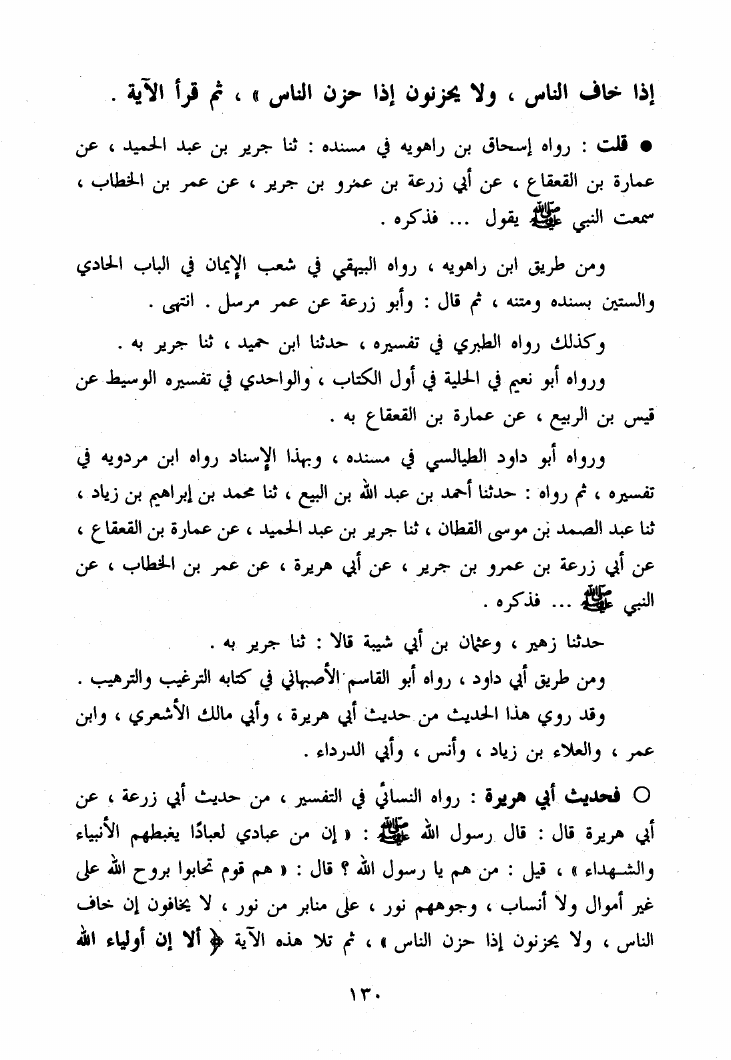 إذا خاف الناس ، ولا يحزنون إذا حزن الناس » ، ثم قرأ الآية .
● قلت : رواه إسحاق بن راهويه في مسنده : ثنا جرير بن عبد الحميد ، عن
عمارة بن القعقاع ، عن أبي زرعة بن عمرو بن جرير ، عن عمر بن الخطاب ،
سمعت النبي ﷺ يقول ... فذكره .
ومن طريق ابن راهويه ، رواه البيهقي في شعب الإيمان في الباب الحادي
والستين بسنده ومتنه ، ثم قال : وأبو زرعة عن عمر مرسل . انتهى .
وكذلك رواه الطبري في تفسيره ، حدثنا ابن حميد ، ثنا جرير به .
ورواه أبو نعيم في الحلية في أول الكتاب ، والواحدي في تفسيره الوسيط عن
قيس بن الربيع ، عن عمارة بن القعقاع به .
ورواه أبو داود الطيالسي في مسنده ، وبهذا الإسناد رواه ابن مردويه في
تفسيره ، ثم رواه : حدثنا أحمد بن عبد الله بن البيع ، ثنا محمد بن إبراهيم بن زياد ،
ثنا عبد الصمد بن موسى القطان ، ثنا جرير بن عبد الحميد ، عن عمارة بن القعقاع ،
عن أبي زرعة بن عمرو بن جرير ، عن أبي هريرة ، عن عمر بن الخطاب ، عن
النبي ﷺ ... فذكره .
حدثنا زهير ، وعثمان بن أبي شيبة قالا : ثنا جرير به .
ومن طريق أبي داود ، رواه أبو القاسم الأصبهاني في كتابه الترغيب والترهيب .
وقد روي هذا الحديث من حديث أبي هريرة ، وأبي مالك الأشعري ، وابن
عمر ، والعلاء بن زياد ، وأنس ، وأبي الدرداء .
○ فحديث أبي هريرة : رواه النسائي في التفسير ، من حديث أبي زرعة ، عن
أبي هريرة قال : قال رسول الله ﷺ : « إن من عبادي لعبادًا يغبطهم الأنبياء
والشهداء » ، قيل : من هم يا رسول الله ؟ قال : « هم قوم تحابوا بروح الله على
غير أموال ولا أنساب ، وجوههم نور ، على منابر من نور ، لا يخافون إن خاف
الناس ، ولا يحزنون إذا حزن الناس » ، ثم تلا هذه الآية ﴿ ألا إن أولياء الله
١٣٠